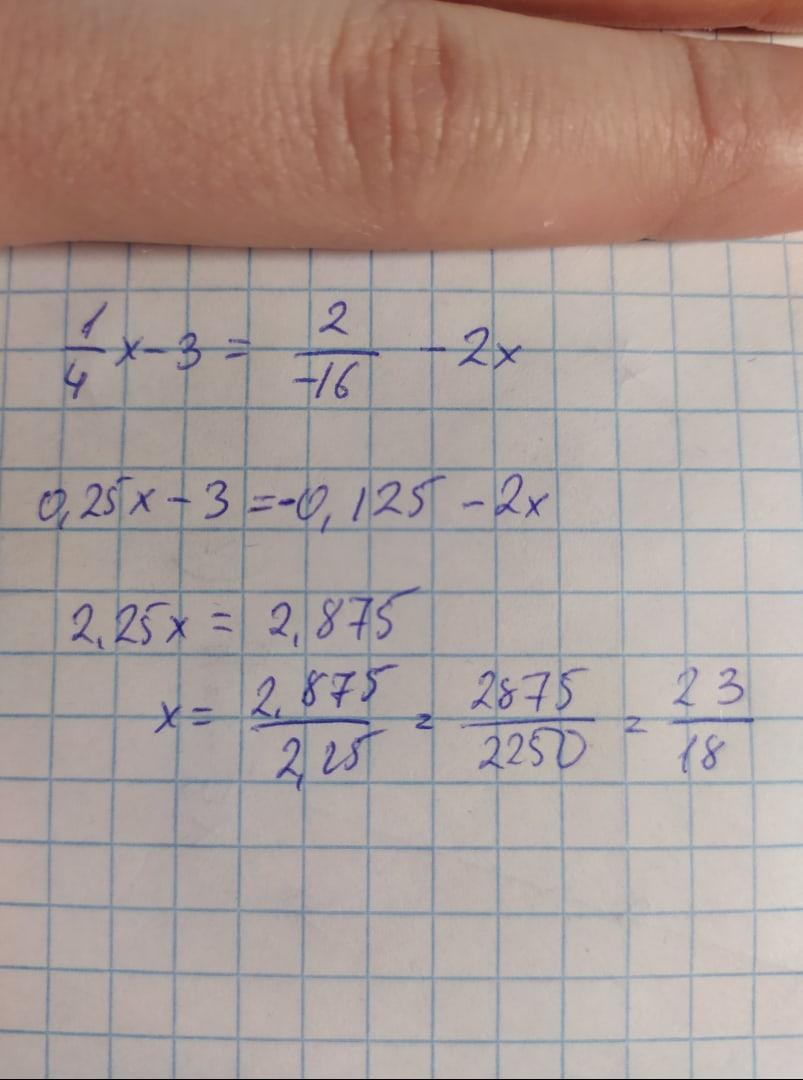 1/4 x - 3 = 2/-16 - 2x
0,25x - 3 = -0,125 - 2x
2,25x = 2,875
x = 2,875/2,25 = 2875/2250 = 23/18